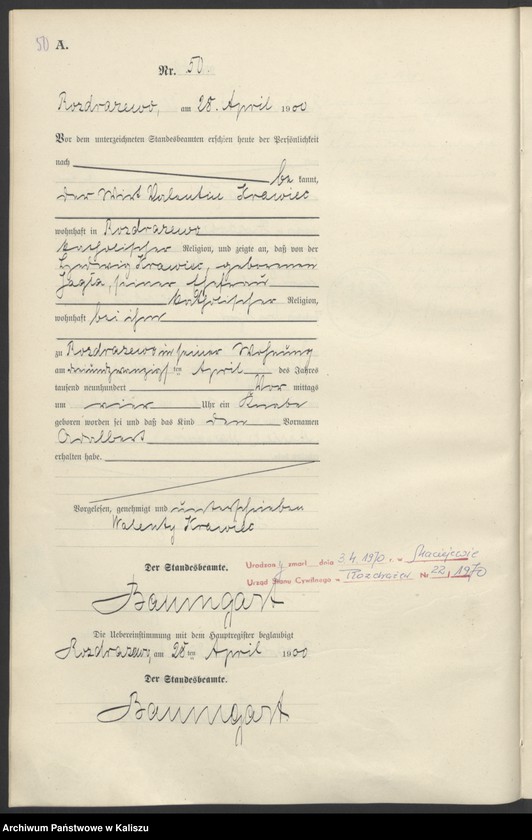 50 A.
Nr. 50.
Rozdrazewo, am 28. April 1900
Vor dem unterzeichneten Standesbeamten erschien heute der Persönlichkeit
nach
be kannt,
der Wirt Valentin Krawiec
wohnhaft in Rozdrazewo
katholischer Religion, und zeigte an, daß von der
Hedwig Krawiec, geborenen
Jagla, seiner Ehefrau
katholischer Religion,
wohnhaft bei ihm
zu Rozdrazewo in seiner Wohnung
am dreiundzwanzigsten April des Jahres
tausend neunhundert Vor mittags
um vier Uhr ein Knabe
geboren worden sei und daß das Kind den Vornamen
Adalbert
erhalten habe.
Vorgelesen, genehmigt und unterschrieben
Walenty Krawiec
Der Standesbeamte.
Baumgart
Urodzony zmarł dnia 3.4.1970 r. w Maciejewie
Urząd Stanu Cywilnego w Rozdrażew № 22 / 1970
Die Uebereinstimmung mit dem Hauptregister beglaubigt
Rozdrazewo, am 28ten April 1900
Der Standesbeamte.
Baumgart
Archiwum Państwowe w Kaliszu